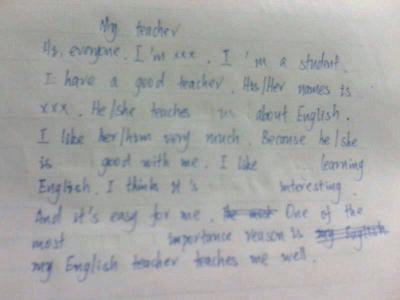 My teacher
Hi, everyone. I'm xxx. I 'm a student.
I have a good teacher. His/Her names is
xxx. He/she teaches us about English.
I like her/him very much. Because he/she
is good with me. I like learning
English. I think it's interesting.
And it's easy for me. One of the
most importance reason is my English
my English teacher teaches me well.